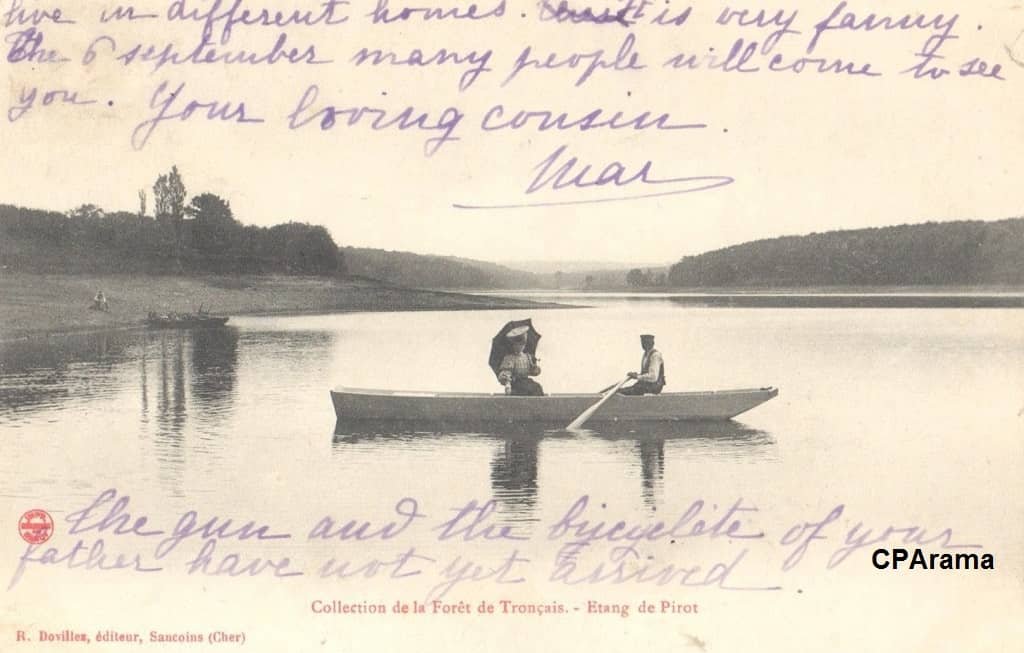 live in different homes. It is very fanny.
The 6 september many people will come to see
you. Your loving cousin.
Mar
The gun and the bicyclète of your
father have not yet arrived
CPArama
Collection de la Forêt de Tronçais. - Etang de Pirot
R. Dovillez, éditeur, Sancoins (Cher)